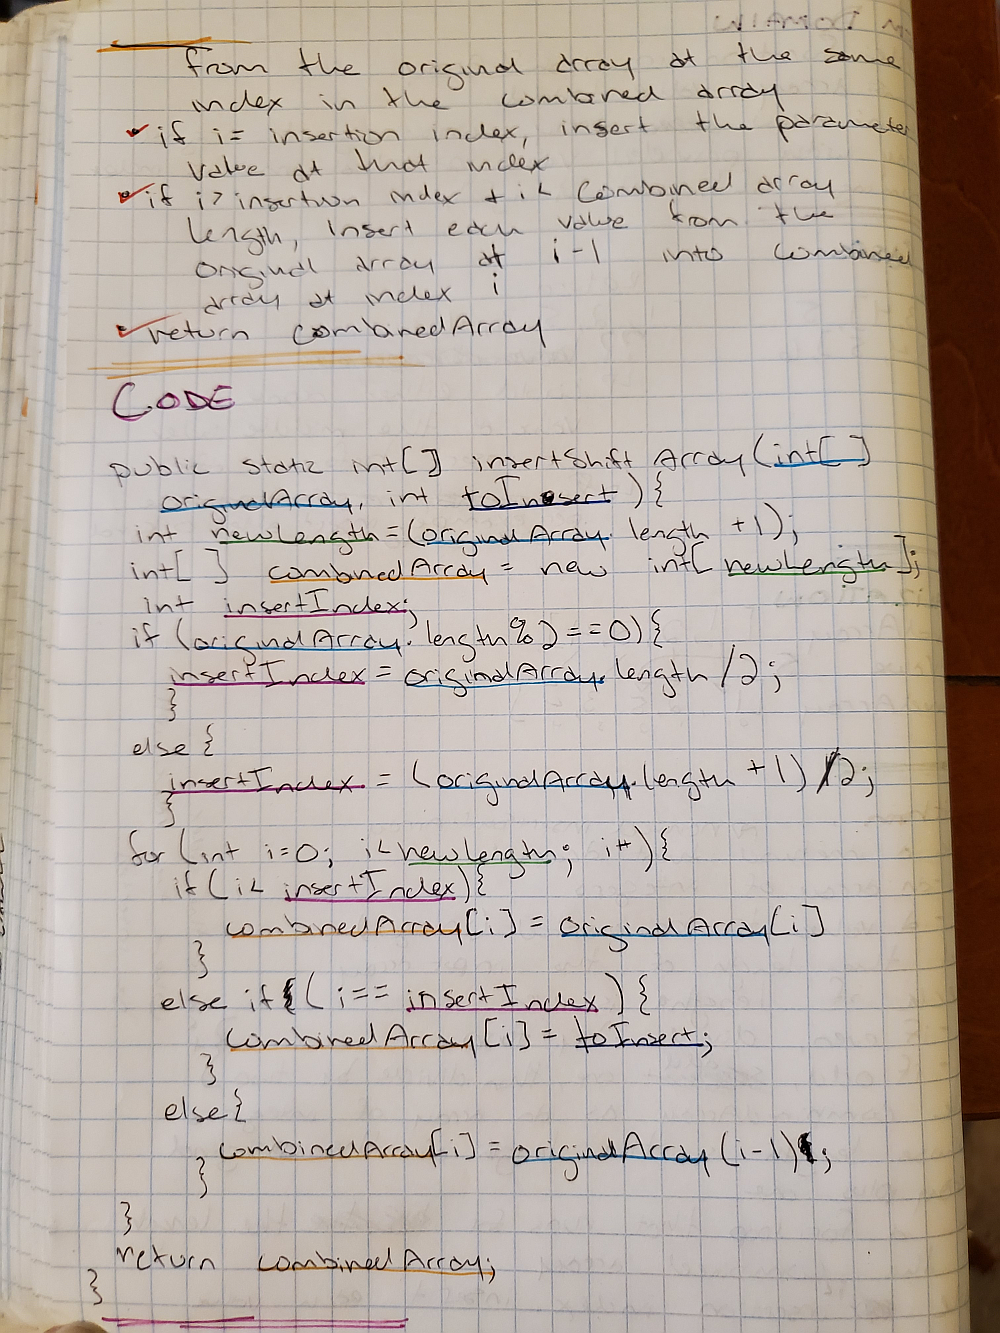 from the original array at the same
index in the combined array
if i = insertion index, insert the parameter
value at that index
if i > insertion index + i < combined array
length, insert each value from the
original array at i-1 into combined
array at index i
return combinedArray
CODE
public static int[] insertShiftArray(int[]
originalArray, int toInsert){
int newLength = (originalArray.length +1);
int[] combinedArray = new int[newLength];
int insertIndex;
if (originalArray.length%2==0){
insertIndex = originalArray.length/2;
}
else {
insertIndex = (originalArray.length +1)/2;
}
for (int i=0; i<newLength; i++){
if (i< insertIndex){
combinedArray[i] = originalArray[i]
}
else if (i== insertIndex){
combinedArray[i] = toInsert;
}
else{
combinedArray[i] = originalArray(i-1);
}
}
return combinedArray;
}